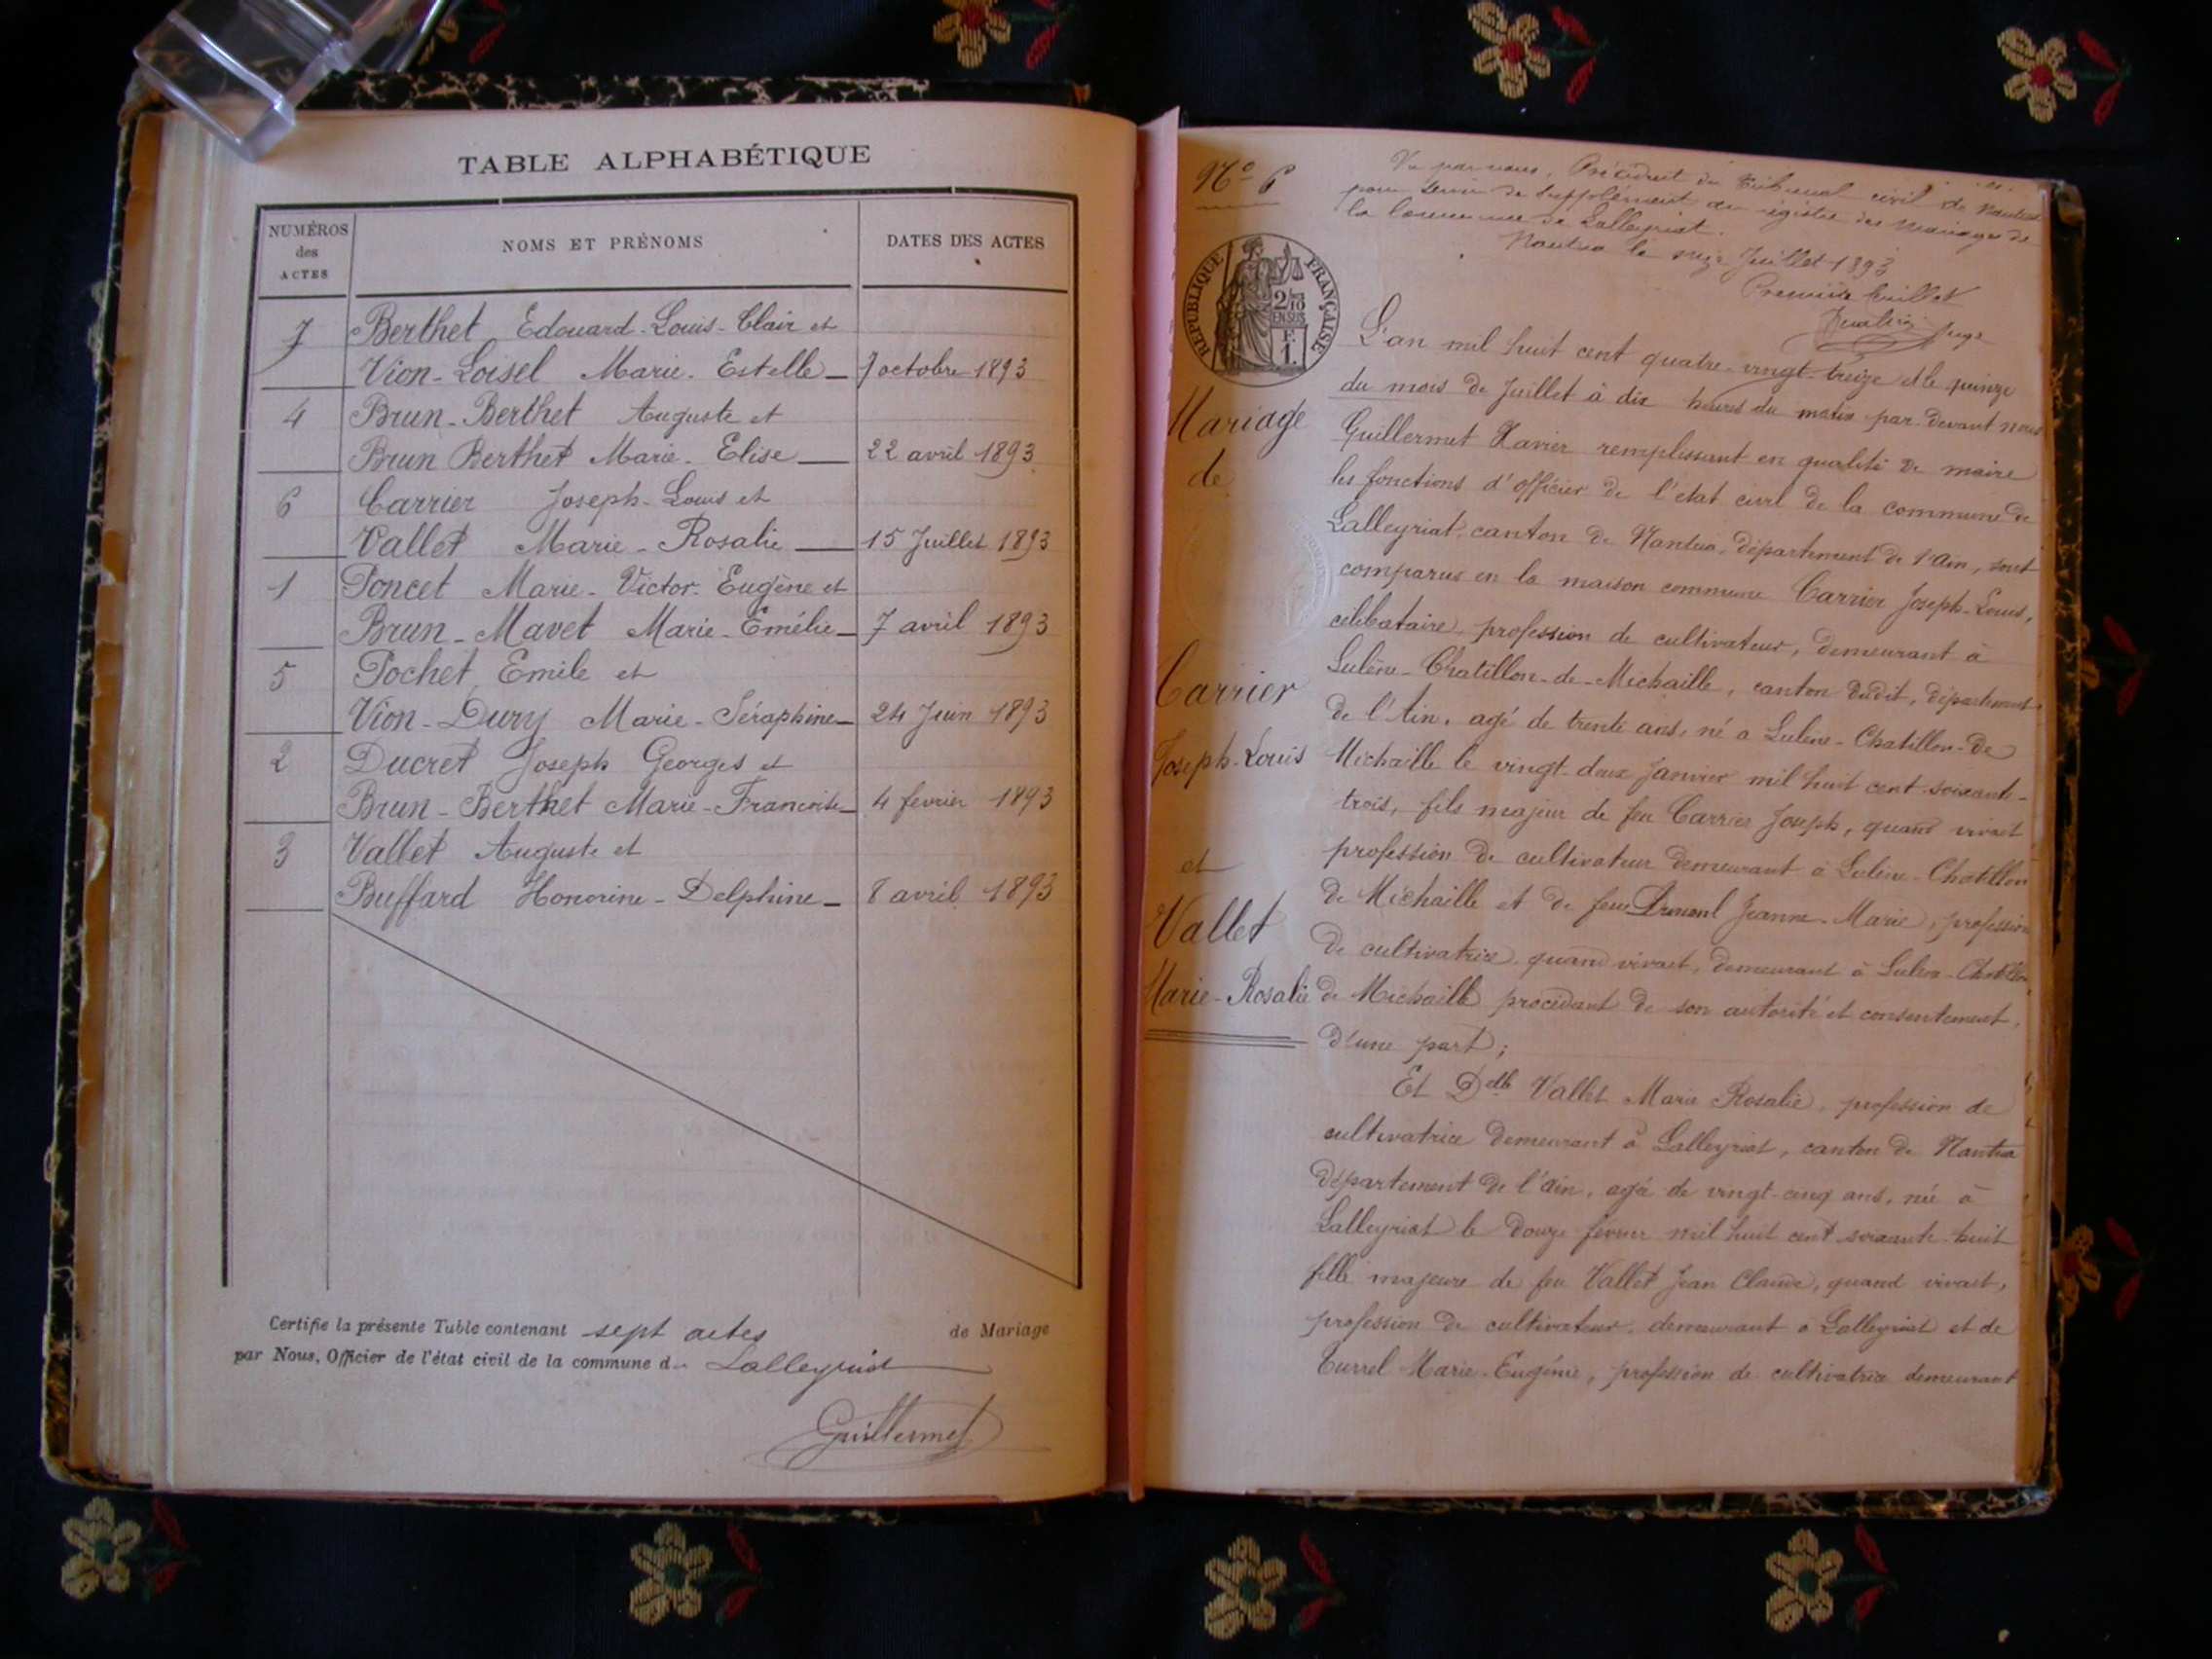 TABLE ALPHABÉTIQUE
NUMÉROS des ACTES
NOMS ET PRÉNOMS
DATES DES ACTES
7 Berthet Edouard-Louis-Clair et
Vion-Loisel Marie-Estelle 7 octobre 1893
4 Brun-Berthet Auguste et
Brun Berthet Marie-Elise 22 avril 1893
6 Carrier Joseph-Louis et
Vallet Marie-Rosalie 15 Juillet 1893
1 Poncet Marie-Victor-Eugène et
Brun-Mavet Marie-Emélie 7 avril 1893
5 Pochet Emile et
Vion-Dury Marie-Séraphine 24 Juin 1893
2 Ducret Joseph Georges et
Brun-Berthet Marie-Francoise 4 fevrier 1893
3 Vallet Auguste et
Buffard Honorine-Delphine 8 avril 1893
Certifie la présente Table contenant sept actes de Mariage
par Nous, Officier de l'état civil de la commune de Lalleyriat
Guillermet
N° 6
Vu par nous, Président du Tribunal civil de Nantua
pour servir de supplément au registre des mariages de
la commune de Lalleyriat.
Nantua le Juillet 1893
Premier feuillet
juge
RÉPUBLIQUE FRANÇAISE
2/10
EN SUS
F.
1.
Mariage
de
Carrier
Joseph-Louis
et
Vallet
Marie-Rosalie
L'an mil huit cent quatre-vingt-treize et le quinze
du mois de Juillet à dix heures du matin par-devant nous
Guillermet Xavier remplissant en qualité de maire
les fonctions d'officier de l'etat civil de la commune de
Lalleyriat, canton de Nantua, département de l'Ain, sont
comparus en la maison commune Carrier Joseph-Louis,
célibataire, profession de cultivateur, demeurant à
Chatillon-de-Michaille, canton dudit, département
de l'Ain, agé de trente ans, né a Chatillon-de
Michaille le vingt-deux Janvier mil huit cent soixante-
trois, fils majeur de feu Carrier Joseph, quand vivait
profession de cultivateur demeurant à Chatillon
de Michaille et de feue Jeanne-Marie, profession
de cultivatrice, quand vivait, demeurant à Chatillon
de Michaille procédant de son autorité et consentement,
d'une part;
Et Delle Vallet Marie Rosalie, profession de
cultivatrice demeurant à Lalleyriat, canton de Nantua
département de l'ain, agée de vingt-cinq ans, née à
Lalleyriat le douze fevrier mil huit cent soixante-huit
fille majeure de feu Vallet Jean Claude, quand vivait,
profession de cultivateur, demeurant à Lalleyriat et de
Turrel Marie-Eugénie, profession de cultivatrice demeurant